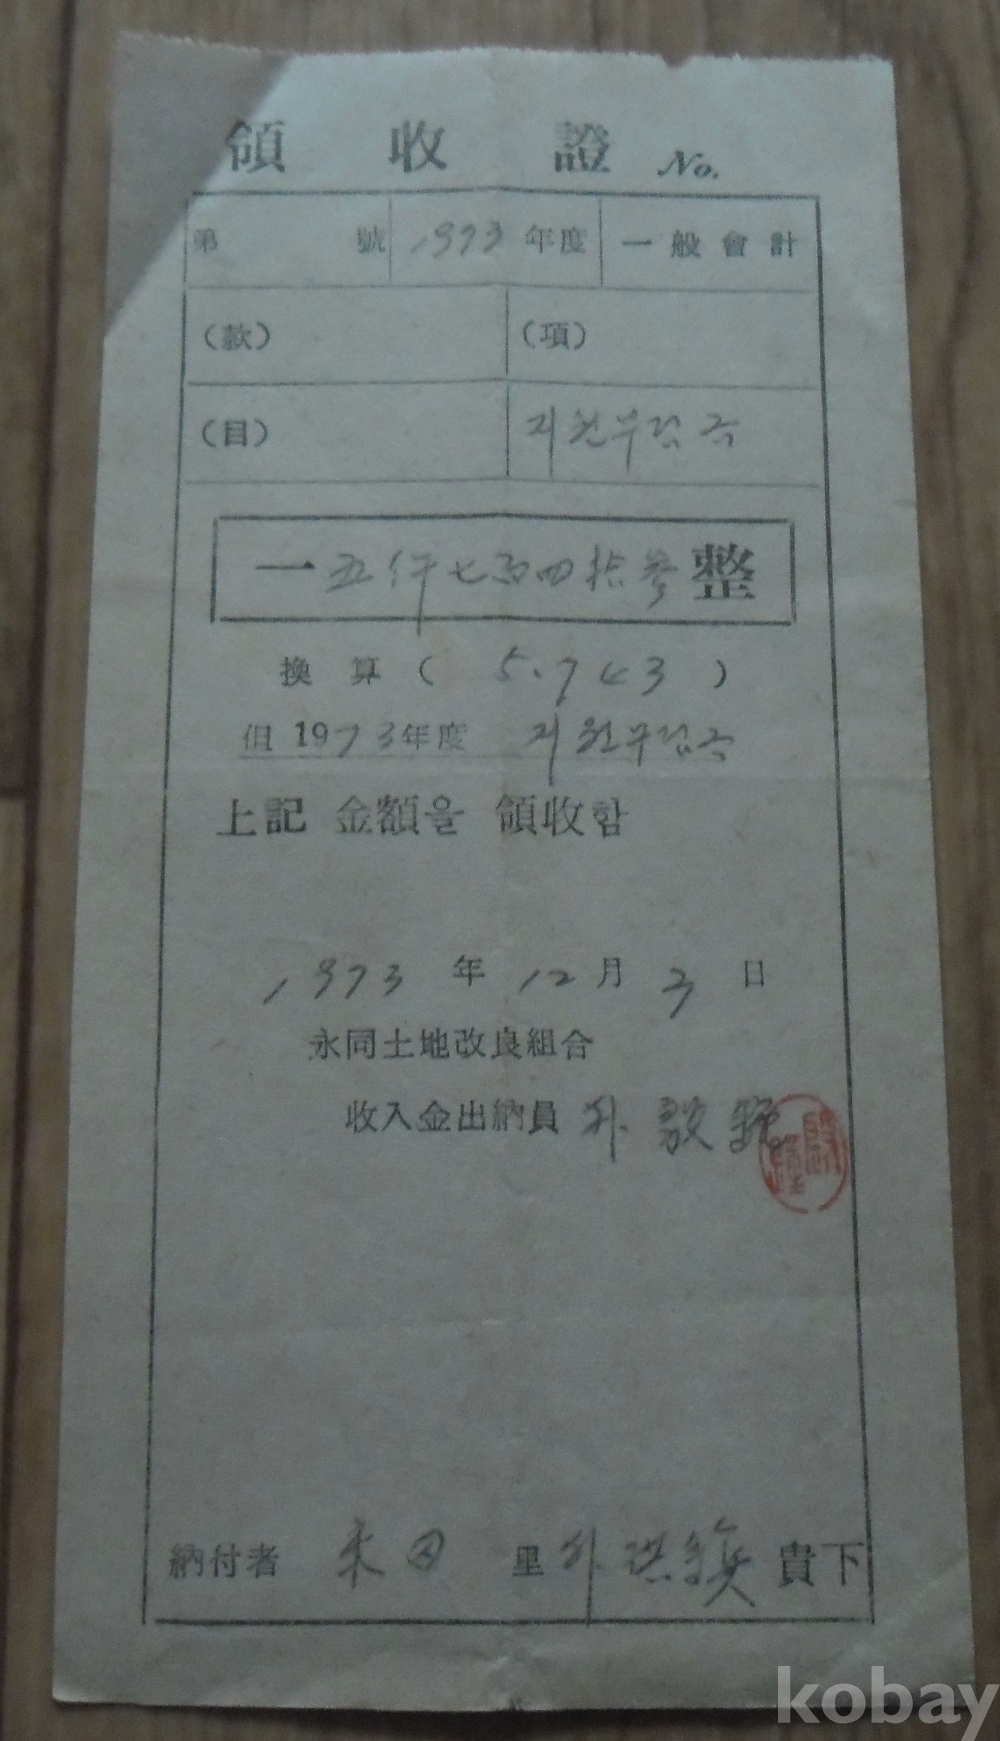 領收證 No.
第 號 1973 年度 一般會計
(款) (項)
(目) 지원부담금
一五仟七百四拾参整
換算( 5.743 )
但 1973年度 지원부담금
上記 金額을 領收함
1973 年 12 月 3 日
永同土地改良組合
收入金出納員 朴
納付者 里 朴 貴下
kobay